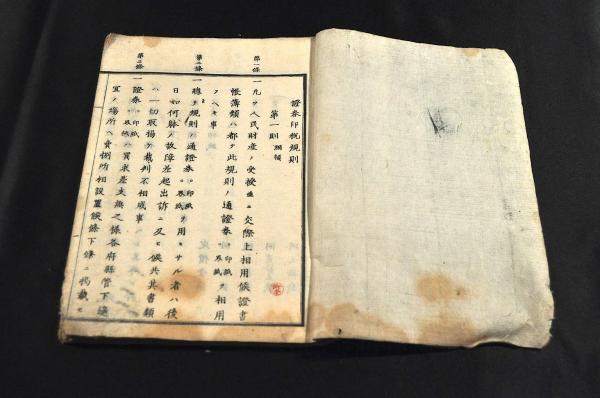 證券印税規則
第一則 綱領
第一條
一 凡ソ人民財産ノ受授並ニ交際上相用候證書
帳簿類ハ都テ此規則ノ通證券印紙界紙ヲ相用
フヘキ事
第二條
一 總テ規則ノ通證券印紙界紙ヲ用ヒサル者ハ後
日如何躰ノ故障差起出訴ニ及ヒ候共其書類
ハ一切取揚ケ裁判不相成事
第三條
一 證券印紙界紙買求差支無之樣各府縣管下適
宜ノ場所ヘ賣捌所相設置候條下條ニ掲載セ